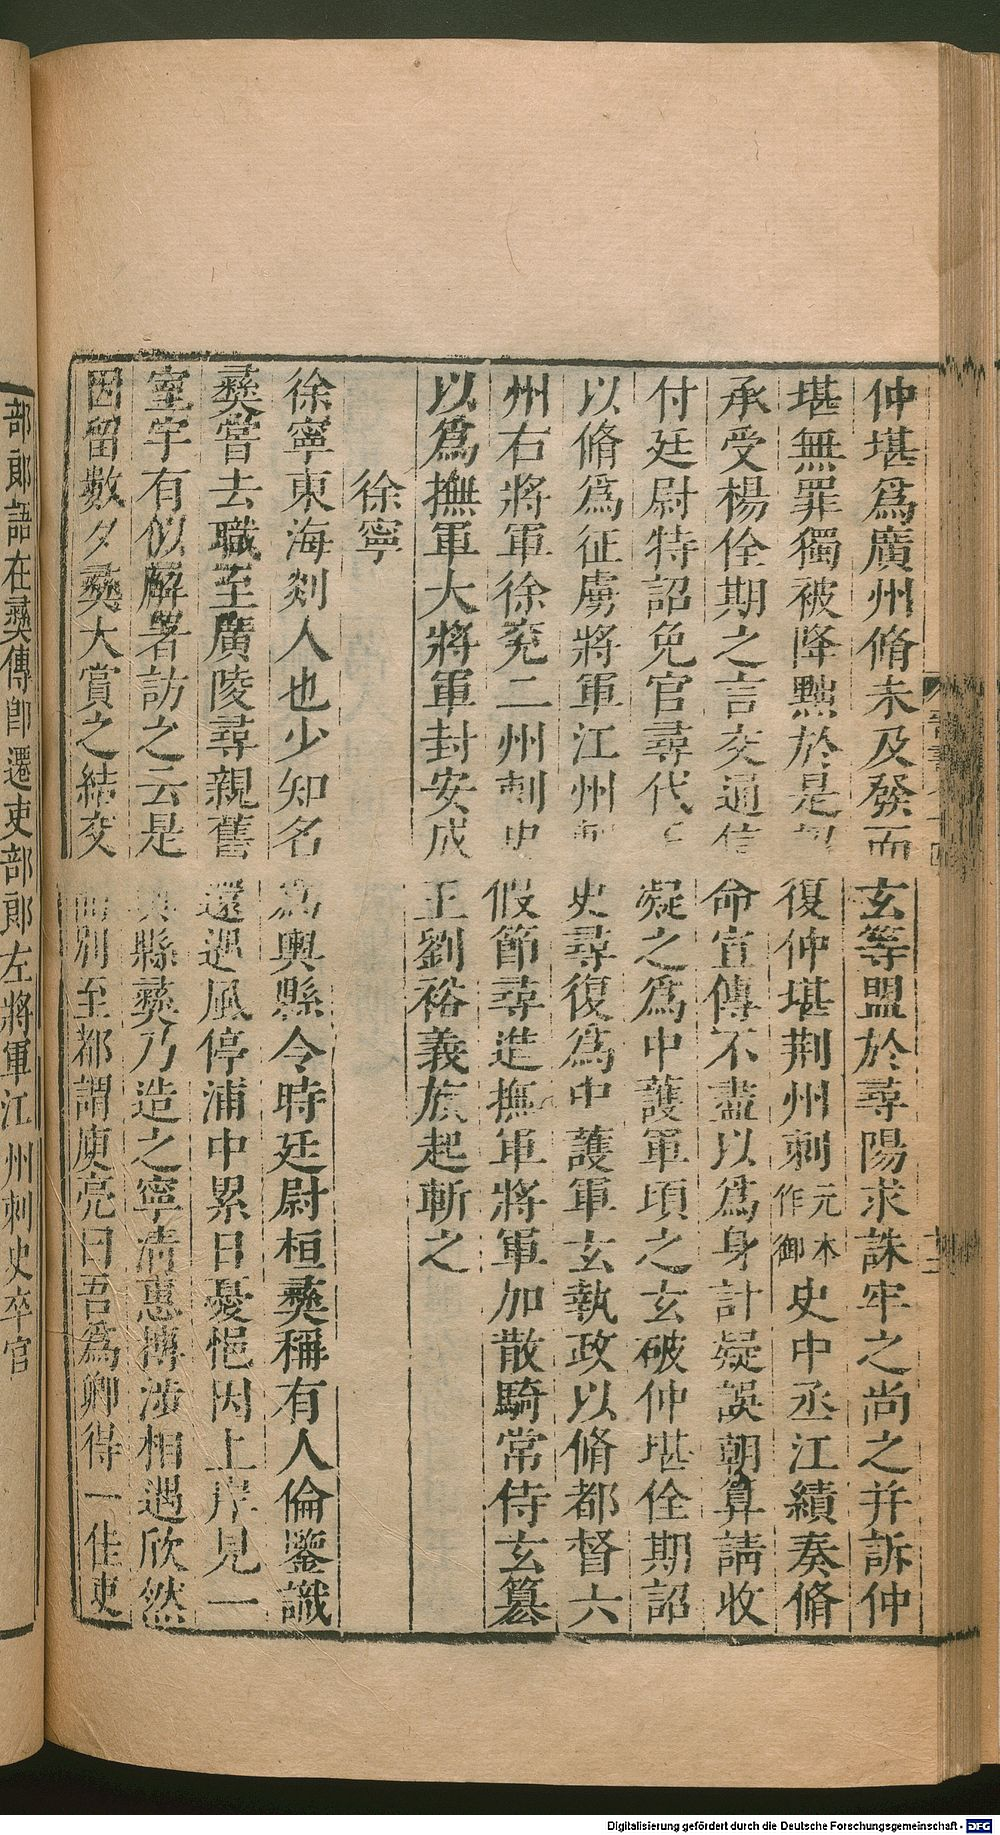 仲堪爲廣州脩未及發而玄等盟於尋陽求誅牢之尚之并訴仲
堪無罪獨被降黜於是復仲堪荆州刺元本作御史中丞江績奏脩
承受楊佺期之言交通信命宣傳不盡以爲身計疑誤朝算請收
付廷尉特詔免官尋代凝之爲中護軍頃之玄破仲堪佺期詔
以脩爲征虜將軍江州刺史尋復爲中護軍玄執政以脩都督六
州右將軍徐兖二州刺史假節尋進撫軍將軍加散騎常侍玄篡
以爲撫軍大將軍封安成王劉裕義旅起斬之
徐寧
徐寧東海剡人也少知名爲輿縣令時廷尉桓彝稱有人倫鑒識
彝嘗去職至廣陵尋親舊還遇風停浦中累日憂悒因上岸見一
室宇有似廨署訪之云是輿縣彝乃造之寧清惠博涉相遇欣然
因留數夕彝大賞之結交而別至都謂庾亮曰吾爲卿得一佳吏
部郎語在彝傳卽遷吏部郎左將軍江州刺史卒官
Digitalisierung gefördert durch die Deutsche Forschungsgemeinschaft - DFG